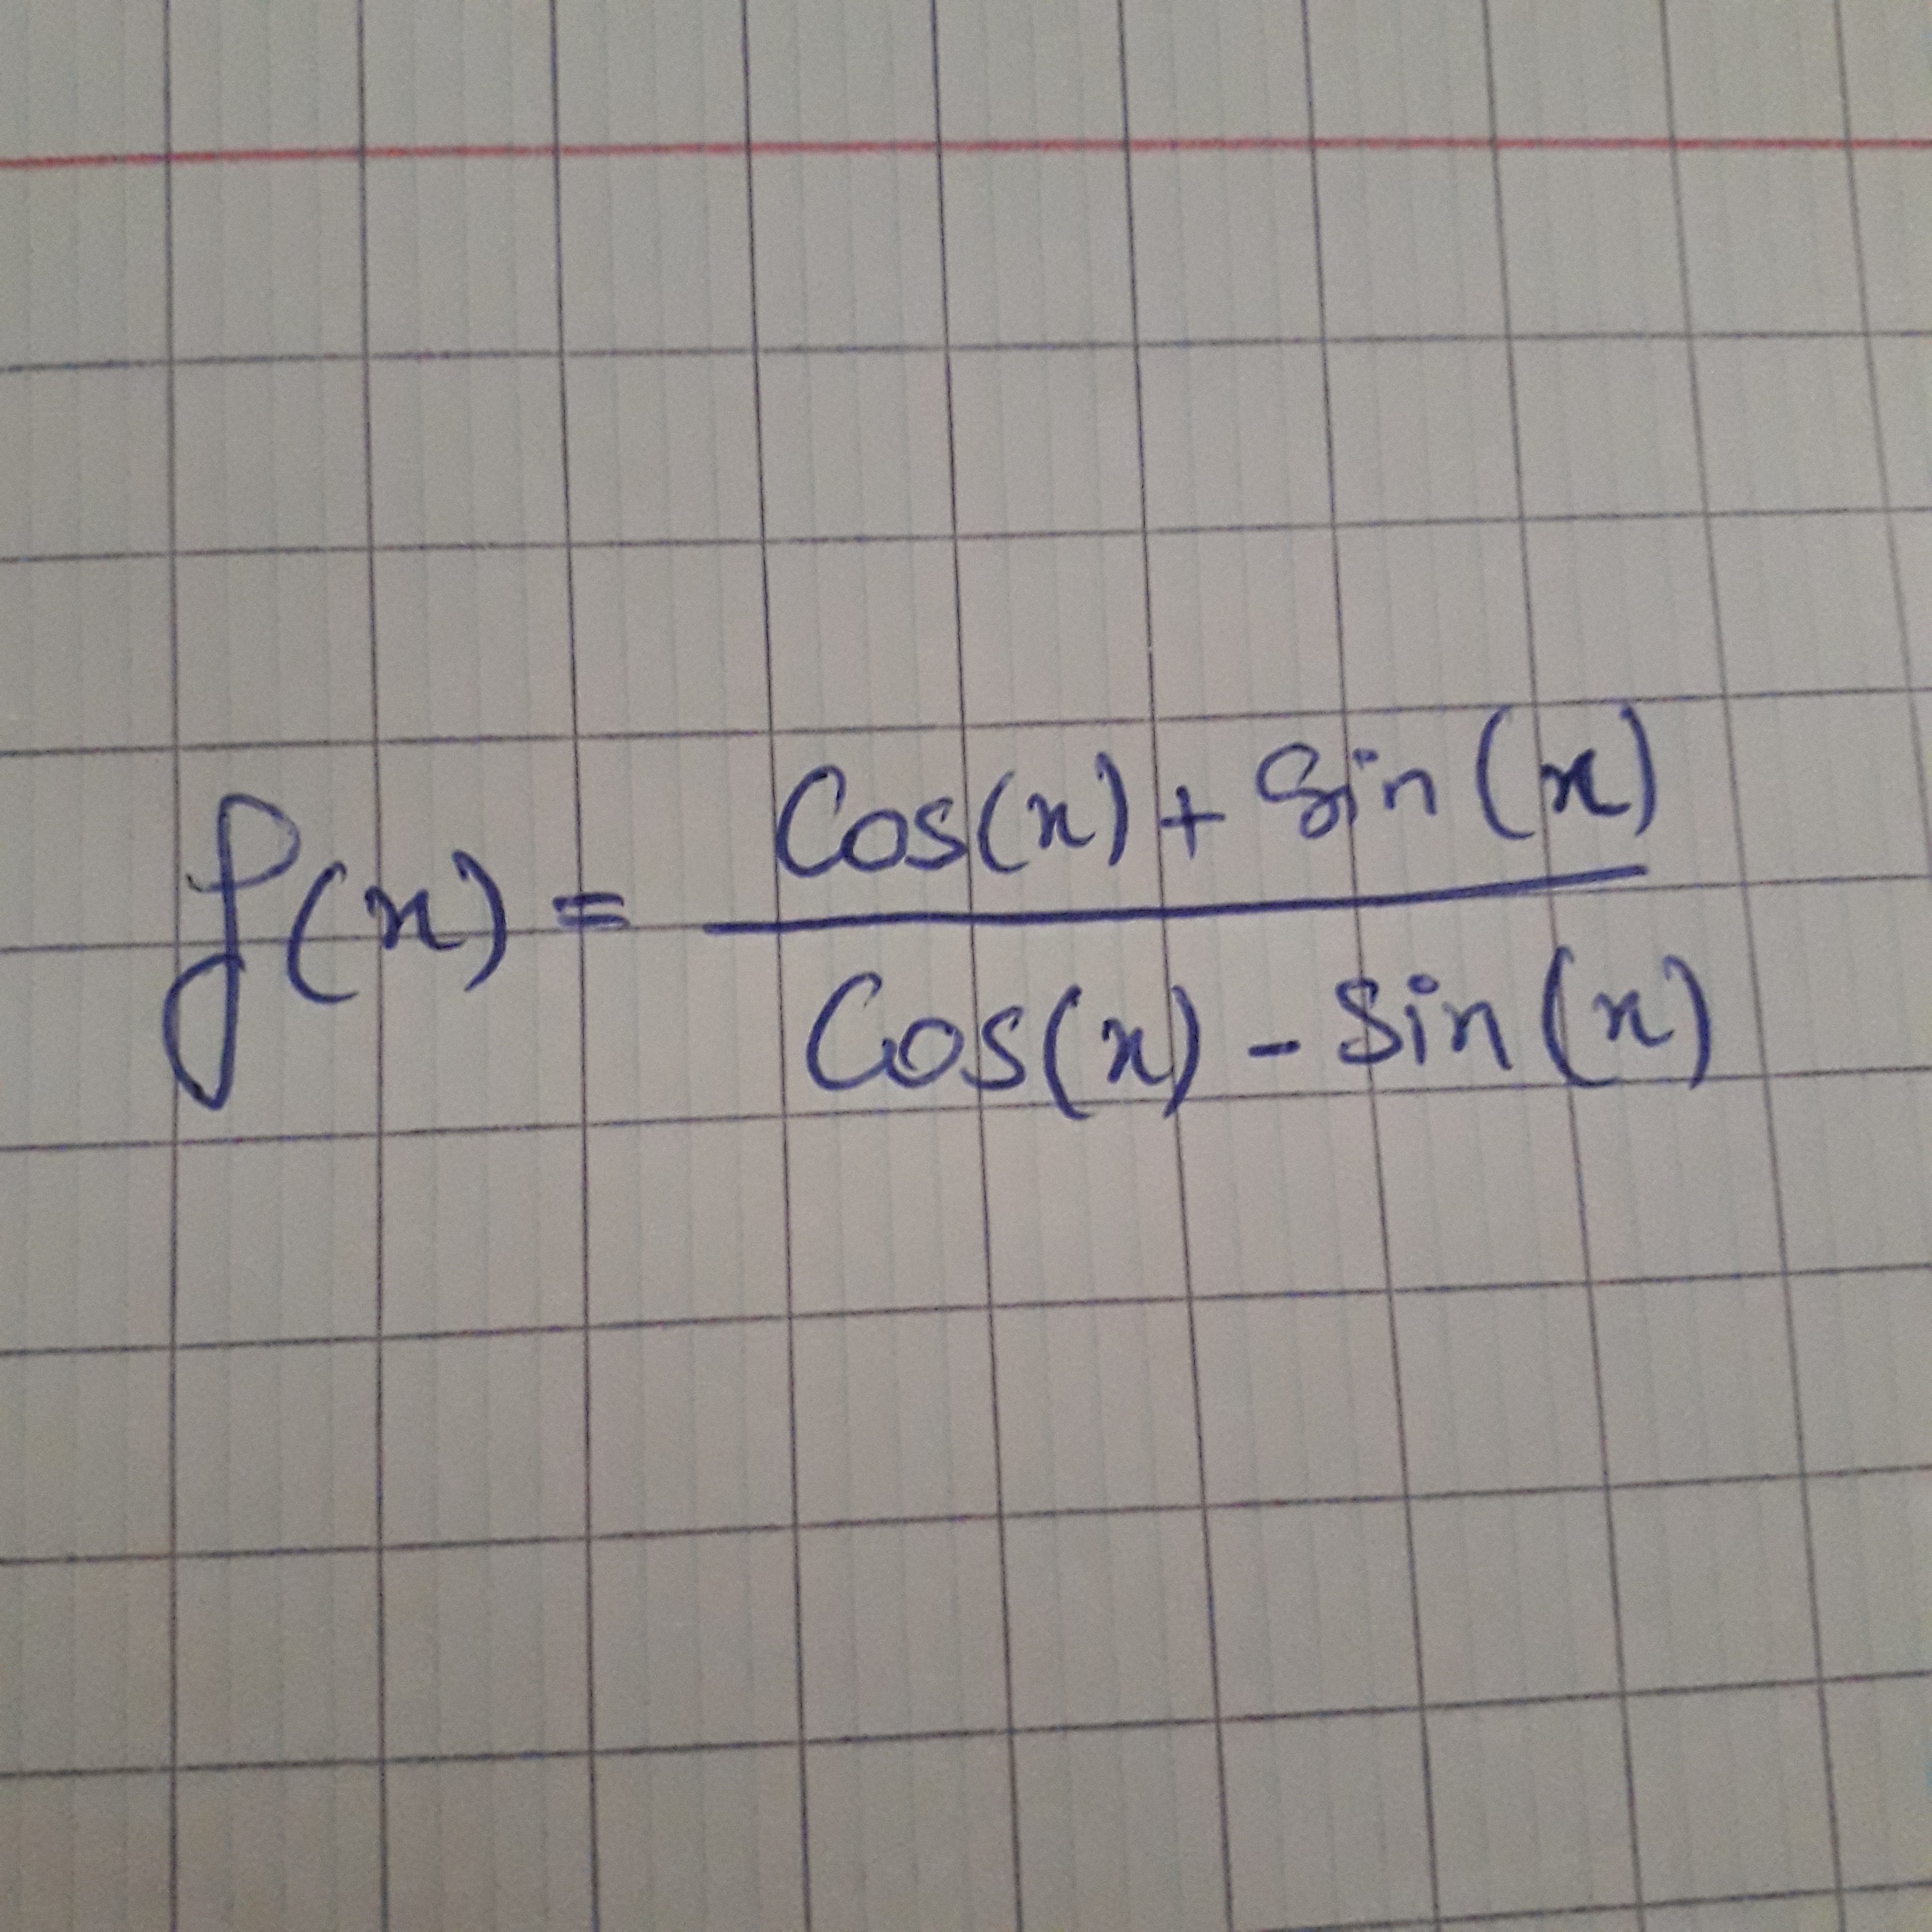 f(x) = Cos(x) + Sin(x)
Cos(x) - Sin(x)